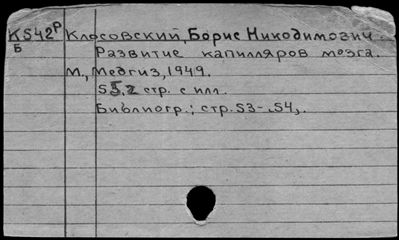 К542Р Клосовский, Борис Никодимович.
Б Развитие капилляров мозга.
М., Медгиз, 1949.
55,2 стр. с илл.
Библиогр.; стр. 53-54,.